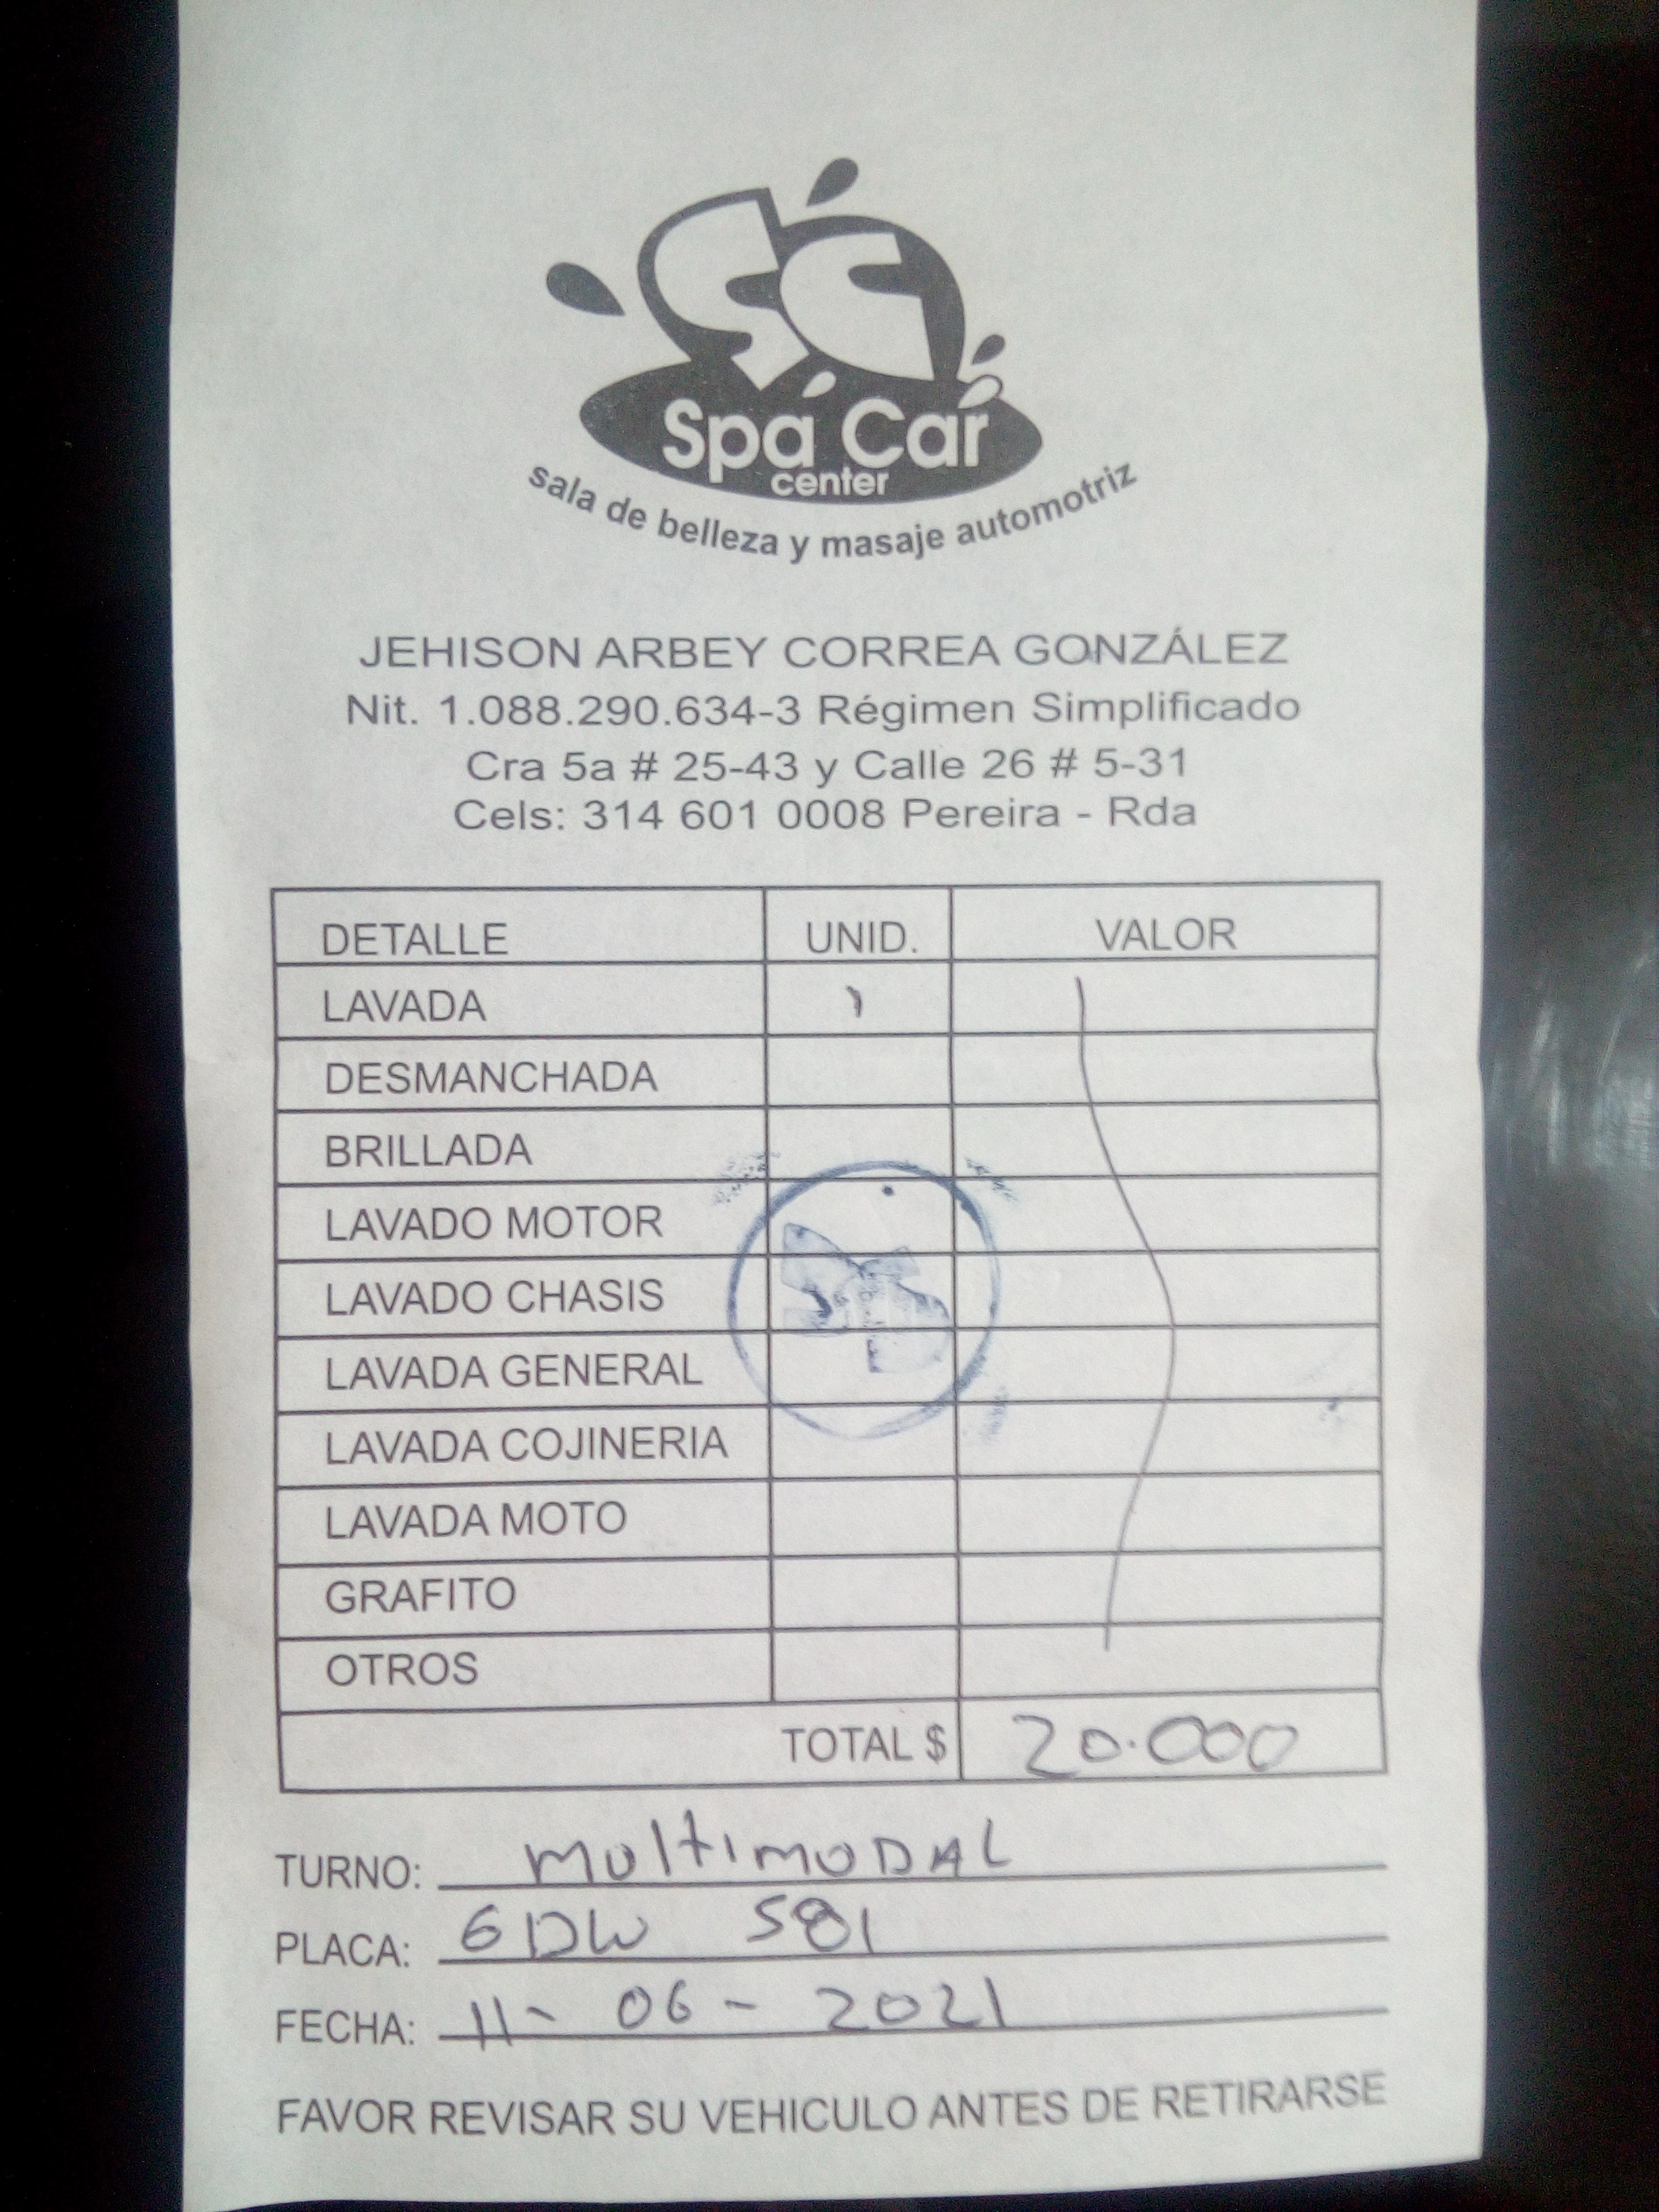 SC
Spa Car
center
sala de belleza y masaje automotriz
JEHISON ARBEY CORREA GONZÁLEZ
Nit. 1.088.290.634-3 Régimen Simplificado
Cra 5a # 25-43 y Calle 26 # 5-31
Cels: 314 601 0008 Pereira - Rda
DETALLE UNID. VALOR
LAVADA 1
DESMANCHADA
BRILLADA
LAVADO MOTOR
LAVADO CHASIS
LAVADA GENERAL
LAVADA COJINERIA
LAVADA MOTO
GRAFITO
OTROS
TOTAL $ 20.000
TURNO: MultiMODAL
PLACA: 6DW 581
FECHA: 11- 06 - 2021
FAVOR REVISAR SU VEHICULO ANTES DE RETIRARSE